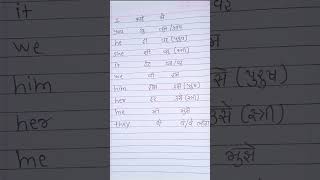 I
you यू तुम/आप
he ही वह (पुरुष)
she शी वह (स्त्री)
it इट
we वी हम
him हिम उसे (पुरुष)
her हर उसे (स्त्री)
me मी मुझे
they दे वे/वे लोग
it
we
him
her
me
उसे (पुरुष)
उसे (स्त्री)
मुझे